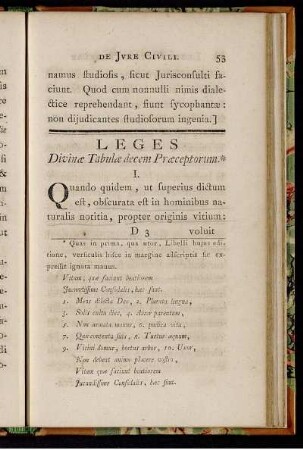 DE JVRE CIVILI. 53
namus studiosis, sicut Jurisconsulti fa-
ciunt. Quod cum nonnulli nimis diale-
ctice reprehendant, fiunt sycophantæ:
non dijudicantes studiosorum ingenia.]
LEGES
Divinæ Tabulæ decem Præceptorum.*
I.
Quando quidem, ut superius dictum
est, obscurata est in hominibus na-
turalis notitia, propter originis vitium:
D 3 voluit
* Quas in prima, qua utor, Libelli hujus edi-
tione, versiculis hisce in margine adscriptis sic ex-
pressit ignota manus.
Vitam, quæ faciunt beatiorem
Jucundissime Confidalis, hæc sunt.
1. Mens dilecta Deo, 2. Pia
3. Sola culta dies, 4. Amor parentum,
5. Non armata manus, 6. pudica vita,
7. Quæ contenta suis, 8. Tacius aequum,
9. Vicini domus, hortus arbor, 10. Uxor,
Que debent animo placere vestro,
Vitam quæ faciunt beatiorem
Jucundissime Confidalis, hæc sunt.